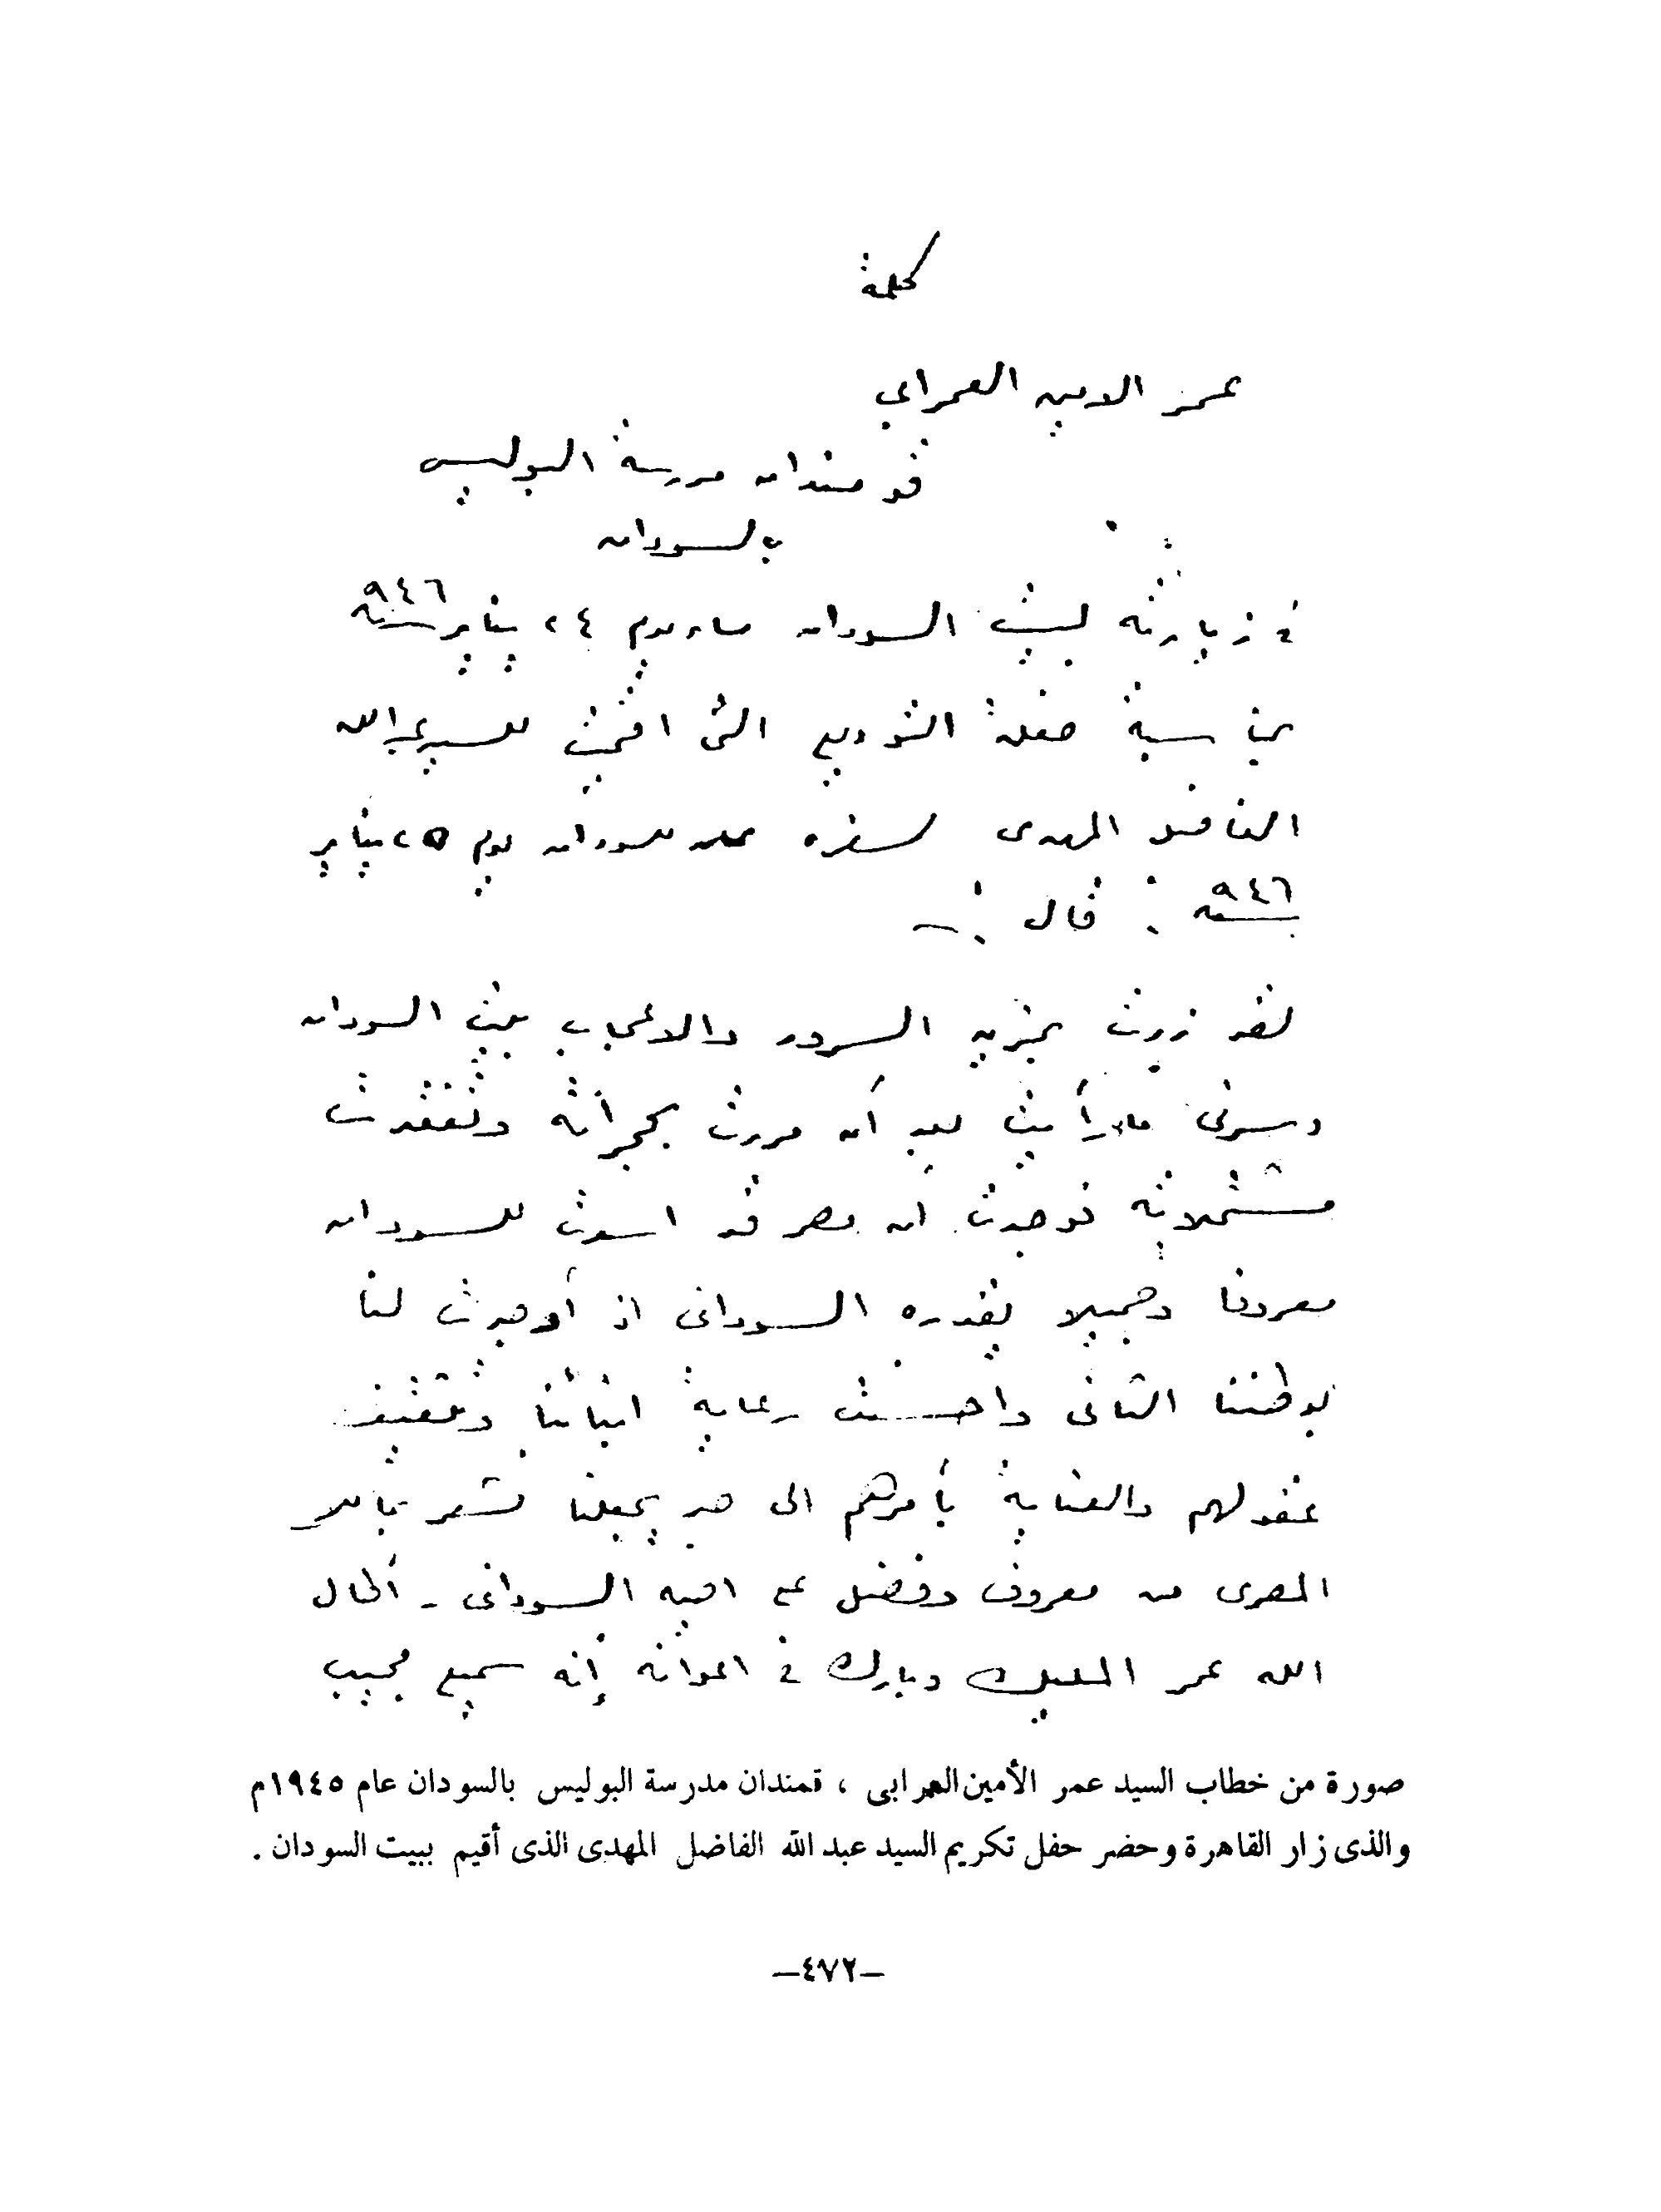 كلمة
عمر الامين العمرابي
قومندان مدرسة البوليس
بالسودان
فى زيارته لبيت السودان مساء يوم ٢٤ يناير سنة ٩٤٦
بمناسبة حفلة التوديع التى اقيمت للسيد عبد الله
الفاضل المهدى لسفره للسودان يوم ٢٥ يناير
سنة ٩٤٦ : قال :ـ
لقد زرت بمزيد السرور والاعجاب بيت السودان
وسرنى ما رأيت بعد أن مررت بحجراته وتفقدت
مشتملاته فوجدت ان مصر قد اسدت للسودان
معروفا وجميلا يقدره السودانى اذ أوجدت لنا
لوطننا الثانى واحسنت رعاية ابنائنا وتثقيف
عقولهم والعناية بأمرهم الى حد يجعلنا نشعر بما
المصرى من معروف وفضل على اخيه السودانى - أطال
الله عمر المليك وبارك فى اعوانه إنه سميع مجيب
صورة من خطاب السيد عمر الأمين العمرابى ، قمندان مدرسة البوليس بالسودان عام ١٩٤٥م
والذى زار القاهرة وحضر حفل تكريم السيد عبد الله الفاضل المهدى الذى أقيم ببيت السودان .
–٤٧٢–